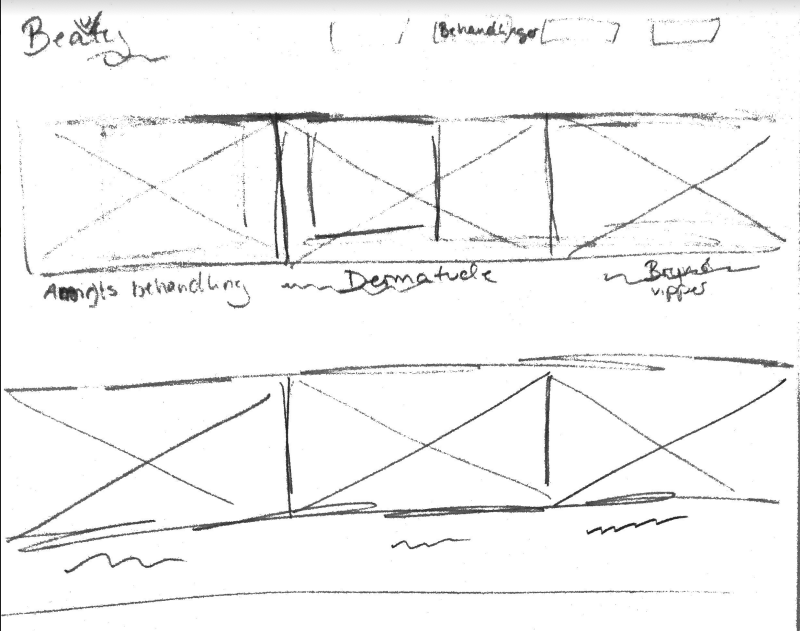 Beauty
Behandlinger
Ansigts behandling
Dermatude
Bryn &
vipper